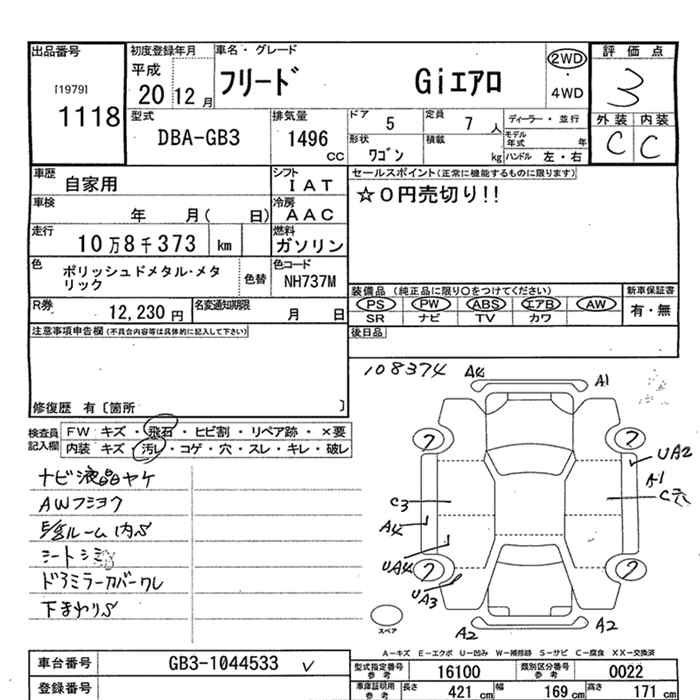 出品番号
[1979]
1118
初度登録年月
平成
20 12 月
車名・グレード
フリード Giエアロ
2WD
・
4WD
評価点
3
外装 内装
C C
型式
DBA-GB3
排気量
1496
cc
ドア 5
定員 7 人
形状
ワゴン
積載
kg
ディーラー・並行
モデル
年式 年
ハンドル 左・右
車歴
自家用
シフト
IAT
車検
年 月( 日)
冷房
AAC
走行
10万8千373 km
燃料
ガソリン
色
ポリッシュドメタル・メタ
リック
色替
色コード
NH737M
R券
12,230 円
名変通知期限
月 日
セールスポイント(正常に機能するものに限ります)
☆0円売切り!!
装備品 (純正品に限り○をつけてください)
PS PW ABS エアB AW
SR ナビ TV カワ
新車保証書
有・無
後日品
注意事項申告欄(不具合内容等は具体的に記入して下さい)
修復歴 有〔箇所 〕
検査員
記入欄
FW キズ・飛石・ヒビ割・リペア跡・×要
内装 キズ・汚レ・コゲ・穴・スレ・キレ・破レ
ナビ液晶ヤケ
AWフシヨク
ルーム内S
シートシミ
ドアミラーカバーワレ
下まわりS
108374
A4
A1
7
7
UA2
A1
C3
A4
UA4
7
7
UA3
A2
A2
スペア
A-キズ E-エクボ U-凹み W-補修跡 S-サビ C-腐食 XX-交換済
車台番号
GB3-1044533
登録番号
型式指定番号
参考
16100
類別区分番号
参考
0022
車庫証明用
参考
長さ 421 cm
幅 169 cm
高さ 171 cm